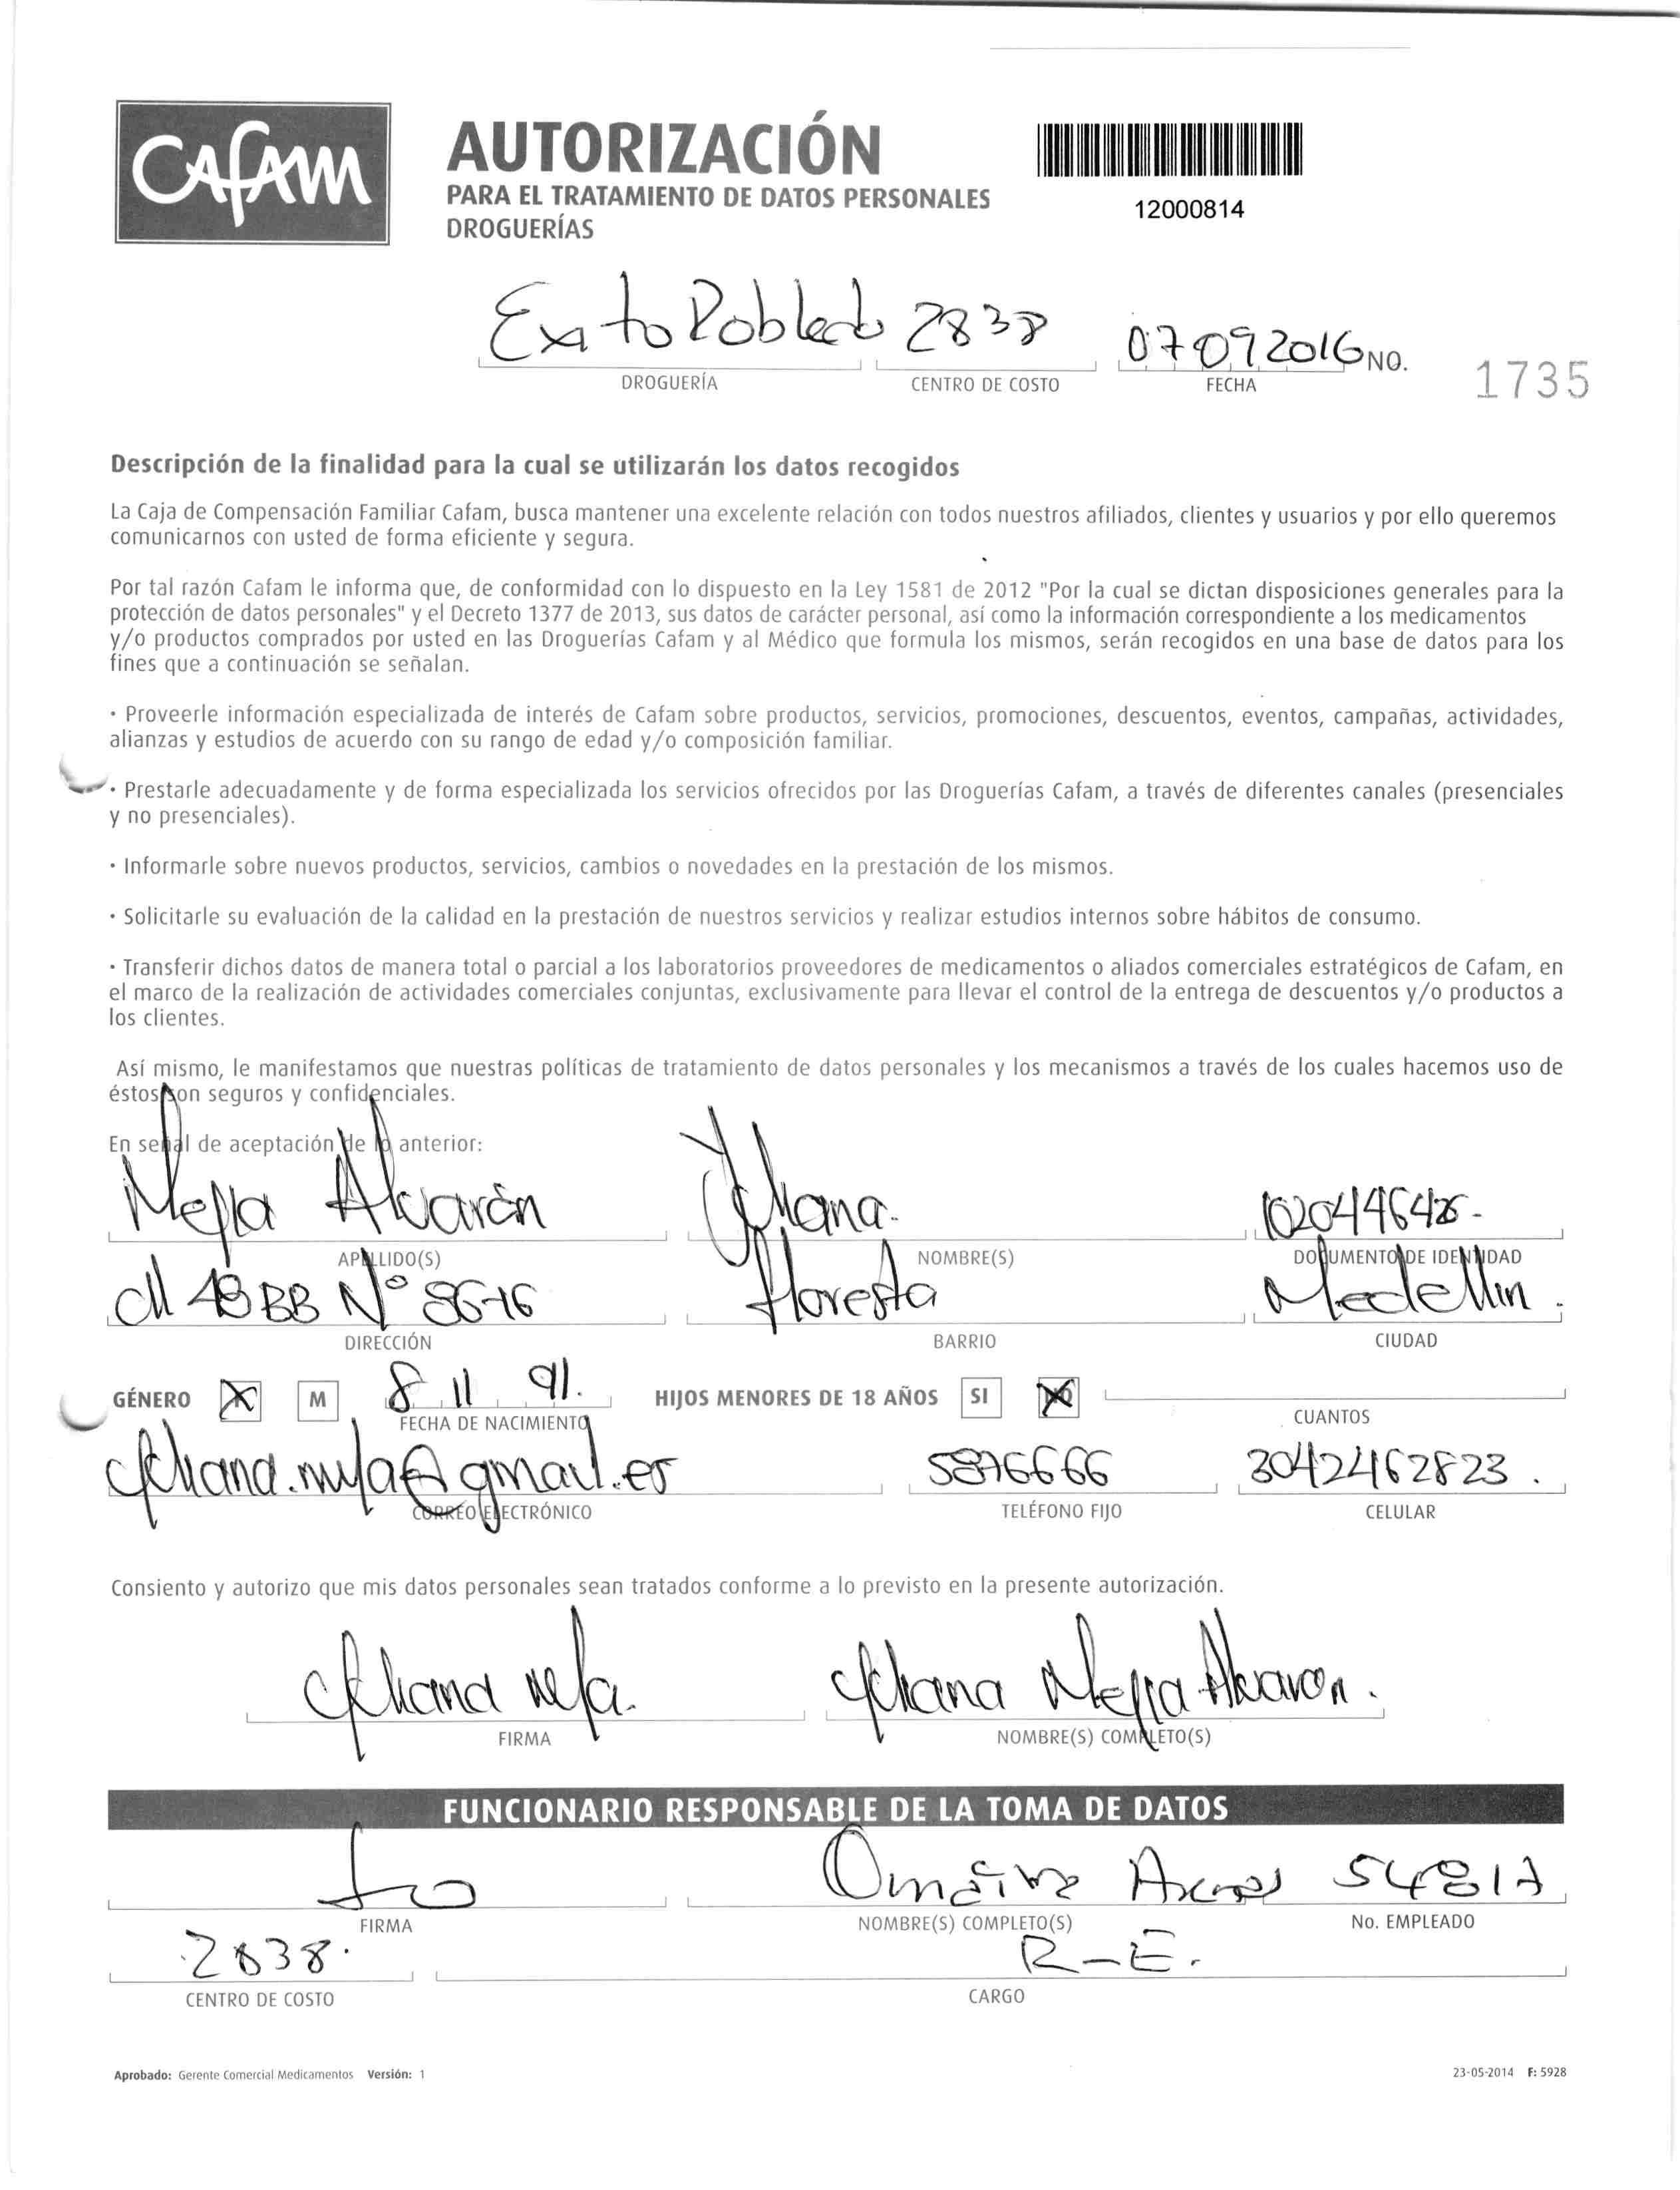 CAFAM
AUTORIZACIÓN
PARA EL TRATAMIENTO DE DATOS PERSONALES
DROGUERÍAS
12000814
Exito Robledo 2838 07092016 NO. 1735
DROGUERÍA CENTRO DE COSTO FECHA
Descripción de la finalidad para la cual se utilizarán los datos recogidos
La Caja de Compensación Familiar Cafam, busca mantener una excelente relación con todos nuestros afiliados, clientes y usuarios y por ello queremos
comunicarnos con usted de forma eficiente y segura.
Por tal razón Cafam le informa que, de conformidad con lo dispuesto en la Ley 1581 de 2012 "Por la cual se dictan disposiciones generales para la
protección de datos personales" y el Decreto 1377 de 2013, sus datos de carácter personal, así como la información correspondiente a los medicamentos
y/o productos comprados por usted en las Droguerías Cafam y al Médico que formula los mismos, serán recogidos en una base de datos para los
fines que a continuación se señalan.
· Proveerle información especializada de interés de Cafam sobre productos, servicios, promociones, descuentos, eventos, campañas, actividades,
alianzas y estudios de acuerdo con su rango de edad y/o composición familiar.
· Prestarle adecuadamente y de forma especializada los servicios ofrecidos por las Droguerías Cafam, a través de diferentes canales (presenciales
y no presenciales).
· Informarle sobre nuevos productos, servicios, cambios o novedades en la prestación de los mismos.
· Solicitarle su evaluación de la calidad en la prestación de nuestros servicios y realizar estudios internos sobre hábitos de consumo.
· Transferir dichos datos de manera total o parcial a los laboratorios proveedores de medicamentos o aliados comerciales estratégicos de Cafam, en
el marco de la realización de actividades comerciales conjuntas, exclusivamente para llevar el control de la entrega de descuentos y/o productos a
los clientes.
Así mismo, le manifestamos que nuestras políticas de tratamiento de datos personales y los mecanismos a través de los cuales hacemos uso de
éstos son seguros y confidenciales.
En señal de aceptación de lo anterior:
Mejia Alvarán Juliana.
APELLIDO(S) NOMBRE(S) DOCUMENTO DE IDENTIDAD
cll 48BB N° 86-16 floresta Medellin.
DIRECCIÓN BARRIO CIUDAD
GÉNERO X M 8 11 91. HIJOS MENORES DE 18 AÑOS SI NO
FECHA DE NACIMIENTO CUANTOS
5876666 30424162823.
CORREO ELECTRÓNICO TELÉFONO FIJO CELULAR
Consiento y autorizo que mis datos personales sean tratados conforme a lo previsto en la presente autorización.
Juliana Mejia. Juliana Mejia Alvaran.
FIRMA NOMBRE(S) COMPLETO(S)
FUNCIONARIO RESPONSABLE DE LA TOMA DE DATOS
Omaira
FIRMA NOMBRE(S) COMPLETO(S) No. EMPLEADO
2838. R-E.
CENTRO DE COSTO CARGO
Aprobado: Gerente Comercial Medicamentos Versión: 1 23-05-2014 F: 5928